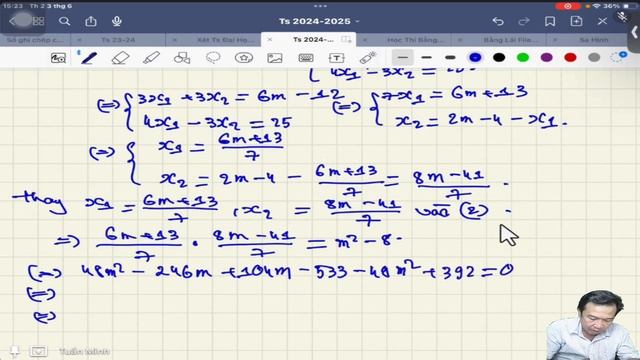 15:23 Th 2 3 thg 6
36%
Ts 2024-2025
Sổ ghi chép c...
Ts 23-24
Xét Ts Đại Họ...
Ts 2024-...
Học Thi Bằng...
Bằng Lái File...
Sa Hình
4x₁ - 3x₂ = 25.
(=) { 3x₁ + 3x₂ = 6m - 12 (=) { 7x₁ = 6m + 13
4x₁ - 3x₂ = 25 x₂ = 2m - 4 - x₁.
(=) { x₁ = (6m + 13)/7
x₂ = 2m - 4 - (6m + 13)/7 = (8m - 41)/7 .
Thay x₁ = (6m + 13)/7 , x₂ = (8m - 41)/7 vào (2) .
=) (6m + 13)/7 . (8m - 41)/7 = m² - 8.
(=) 48m² - 246m + 104m - 533 - 49m² + 392 = 0
(=)
(=)
Tuấn Minh